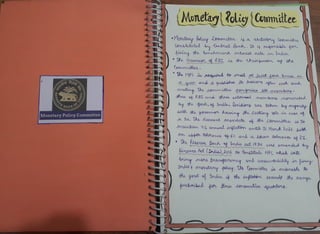 Monetary Policy Committee
Monetary Policy Committee
• Monetary Policy Committee is a statutory Committee
constituted by Central Bank. It is responsible for
fixing the benchmark interest rate in India.
• The Governor of RBI is the Chairperson of the
Committee.
• The MPC is required to meet at least four times in
a year and it publishes its decisions after each such
meeting. The committee comprises six members -
three of RBI and three external members nominated
by the govt. of India. Decisions are taken by majority
with the governor having the casting vote in case of
a tie. The current mandate of the Committee is to
maintain 4% annual inflation until 31 March 2021 with
an upper tolerance of 6% and a lower tolerance of 2%.
• The Reserve Bank of India act 1934 was amended by
Finance Act (India), 2016 to constitute MPC which will
bring more transparency and accountability in fixing
India's monetary policy. The Committee is answerable to
the govt of India if the inflation exceeds the range
prescribed for three consecutive quarters.